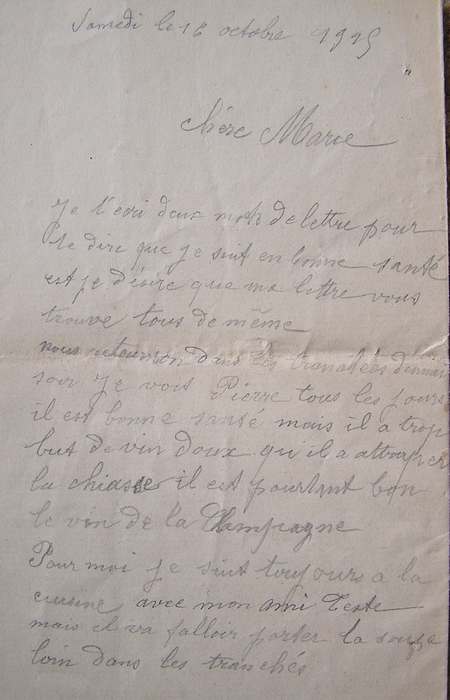 Samedi le 16 octobre 1915
chère Marie
Je t'ecri deux mots de lettre pour
te dire que je suit en bonne santé
est je désire que ma lettre vous
trouve tous de même
nous retournon dans les tranchées demain
soir Je vois Pierre tous les jours
il est bonne santé mais il a trop
but de vin doux qu il a attraper
la chiasse il est pourtant bon
le vin de la Champagne
Pour moi je suit toujours a la
cuisine avec mon ami Teste
mais il va falloir porter la soupe
loin dans les tranchés